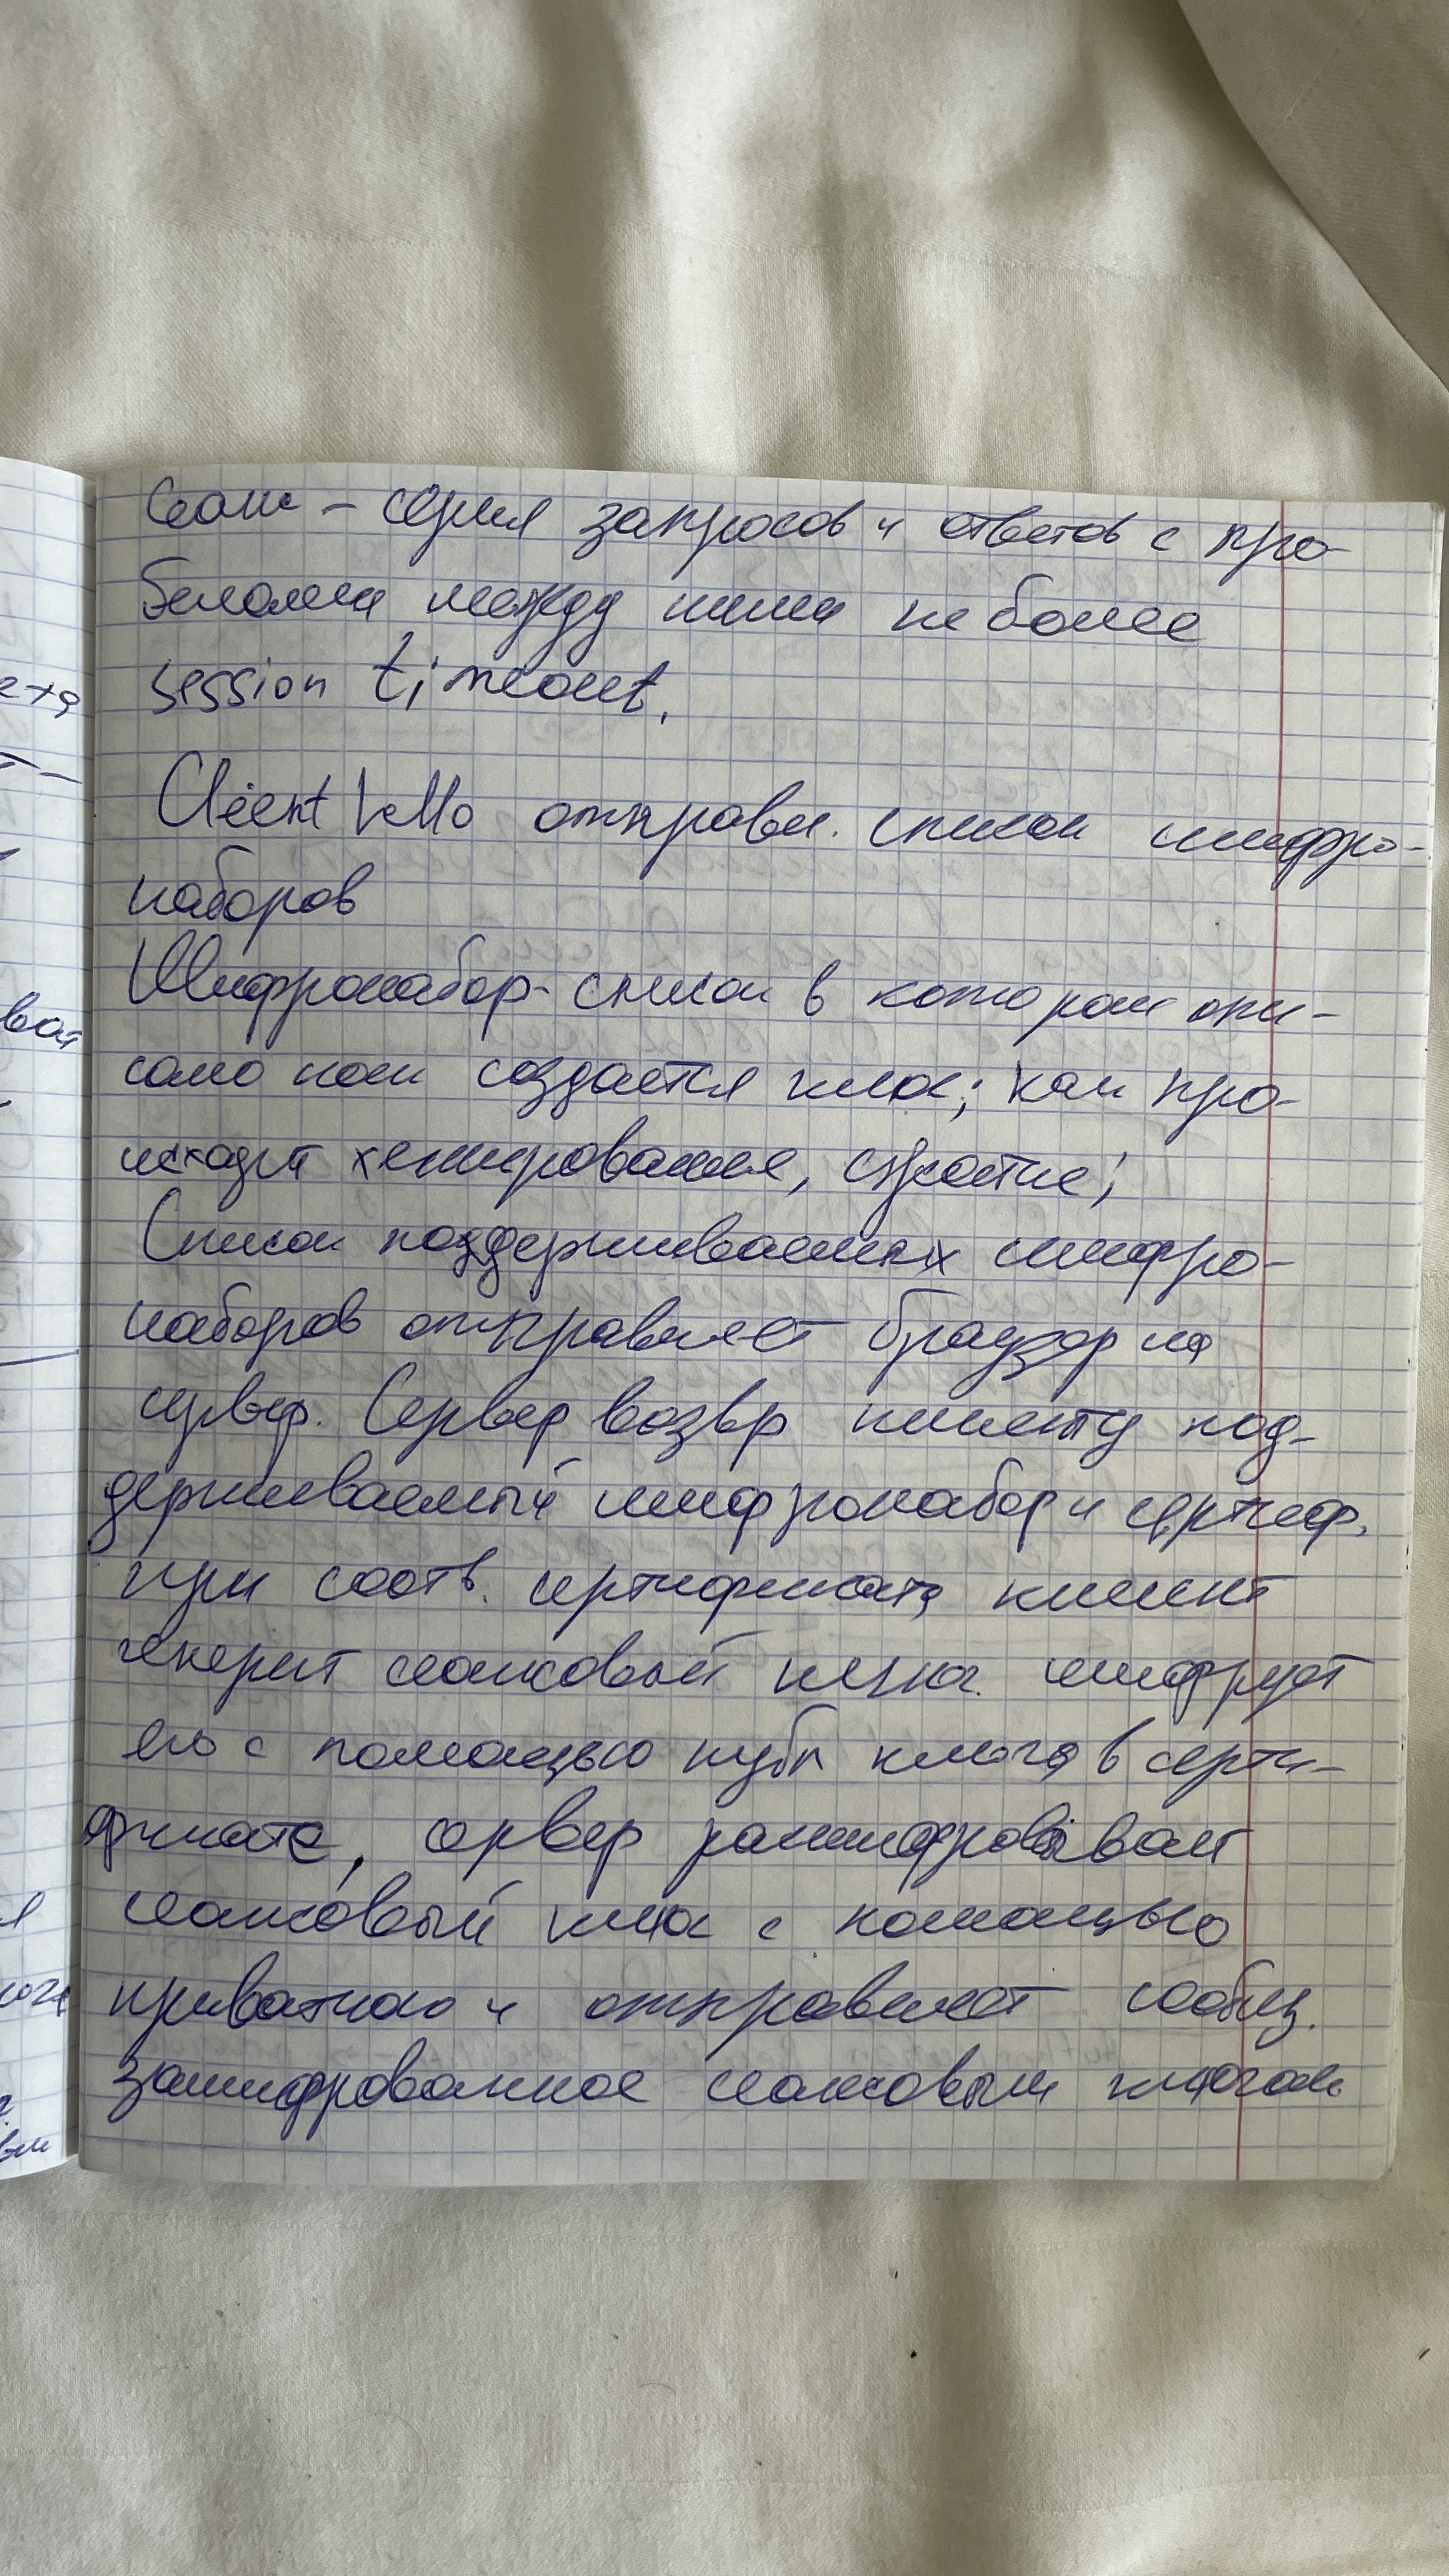 Сеанс – серия запросов и ответов с про-
белами между ними не более
session timeout.
Client hello отправл. список шифро-
наборов
Шифронабор - список в котором опи-
сано как создается ключ; как про-
исходит хеширование, сжатие;
Список поддерживаемых шифро-
наборов отправляет браузер на
сервер. Сервер возвр клиенту под-
держиваемый шифронабор и сертиф.
при соотв. сертификата клиент
генерит сеансовый ключ. шифрует
его с помощью публ ключа в серти-
фикате, сервер расшифровывает
сеансовый ключ с помощью
приватного и отправляет сообщ.
зашифрованное сеансовым ключом